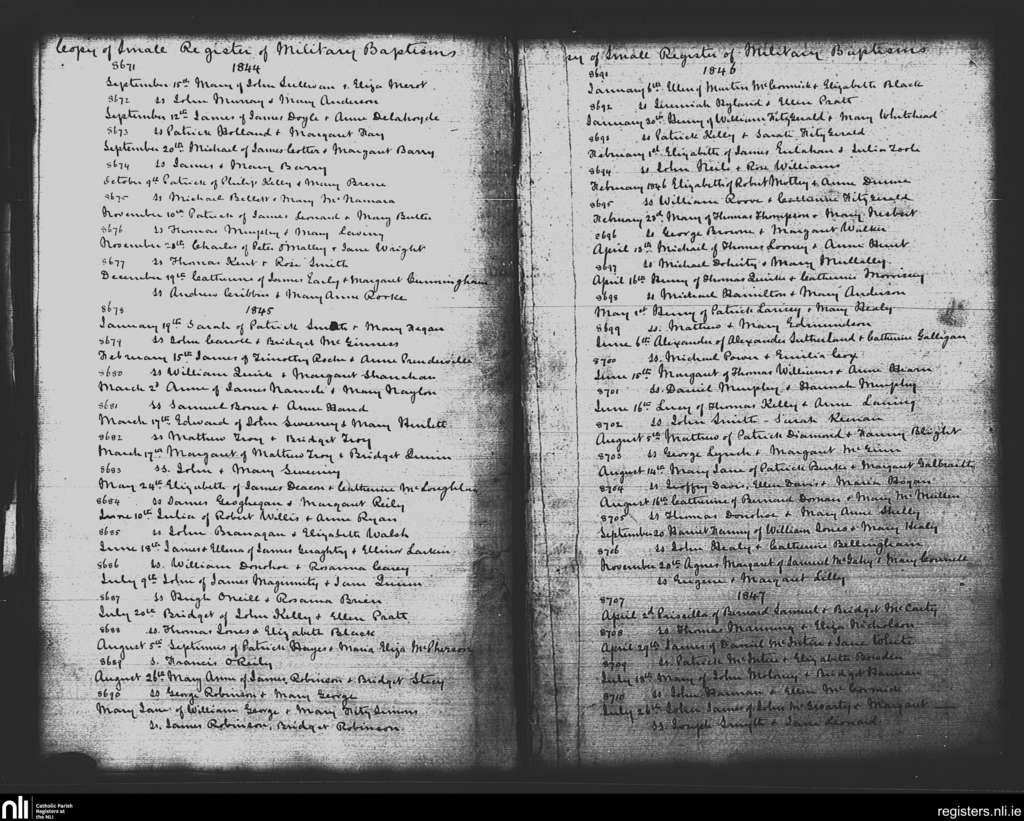 Copy of Small Register of Military Baptisms
8671 1844
September 15th Mary of John Sullivan & Eliza Merot
8672 ss John Murray & Mary Anderson
September 12th James of James Doyle & Anne Delahoyde
8673 ss Patrick Holland & Margaret Fay
September 20th Michael of James Cotter & Margaret Barry
8674 ss James & Mary Barry
October 9th Patrick of Philip Kelly & Mary
8675 ss Michael Bellett & Mary McNamara
November 10th Patrick of James Leonard & Mary Butler
8676 ss Thomas Murphy & Mary
November 28th Charles of Peter O'Malley & Jane Wright
8677 ss Thomas Kent & Rose Smith
December 19th Catherine of James Early & Margaret Cunningham
ss Andrew Cribbin & Mary Anne Rorke
8678 1845
January 19th Sarah of Patrick Smith & Mary Fegan
8679 ss John Carroll & Bridget McGinness
February 15th James of Timothy Roche & Anne Prenderville
8680 ss William Quirk & Margaret Shanahan
March 2d Anne of James & Mary Naylon
8681 ss Samuel Bower & Anne Hand
March 17th Edward of John Sweeney & Mary Hewlett
8682 ss Mathew Troy & Bridget Troy
March 17th Margaret of Mathew Troy & Bridget Quinn
8683 ss. John & Mary Sweeney
May 24th Elizabeth of James Deacon & Catherine McLoughlin
8684 ss James Geoghegan & Margaret Reily
June 10th Julia of Robert Willis & Anne Ryan
8685 ss John Branagan & Elizabeth Walsh
June 18th James & Ellena of James Geraghty & Ellinor Larkin
8686 ss. William Donohoe & Rosanna Carey
July 9th John of James Maginnity & Jane Quinn
8687 ss Hugh O'Neill & Rosanna Brien
July 20th Bridget of John Kelly & Ellen Pratt
8688 ss. Thomas Jones & Elizabeth Black
August 5th Septimus of Patrick Hayes & Maria Eliza McPherson
8689 s. Francis O'Reily
August 26th Mary Anne of James Robinson & Bridget
8690 ss George Robinson & Mary George
Mary Jane of William George & Mary FitzSimons
ss. James Robinson, Bridget Robinson
py of Small Register of Military Baptisms
8691 1846
January 6th Ellen of Martin McCormick & Elizabeth Black
8692 ss Jeremiah Hyland & Ellen Pratt
January 30th Henry of William FitzGerald & Mary Whitehead
8693 ss Patrick Kelly & Sarah FitzGerald
February 1st Elizabeth of James & Julia Toole
8694 ss John Neile & Rose Williams
February 1846 Elizabeth of Robert Motley & Anne Dunne
8695 ss William & Catherine FitzGerald
February 23d Mary of Thomas Thompson & Mary Nesbitt
8696 ss George Browne & Margaret Walker
April 13th Michael of Thomas Looney & Anne Hunt
8697 ss Michael Doherty & Mary Mullally
April 16th Henry of Thomas Quirke & Catherine Morrissey
8698 ss Michael Hamilton & Mary Anderson
May 1st Henry of Patrick & Mary Healy
8699 ss. Mathew & Mary Edmundson
June 6th Alexander of Alexander Sutherland & Catherine Galligan
8700 ss. Michael Power & Emilia Cox
June 15th Margaret of Thomas Williams & Anne Hearn
8701 ss. Daniel Murphy & Hannah Murphy
June 16th Lucy of Thomas Kelly & Anne
8702 ss John Smith - Sarah
August 5th Mathew of Patrick Diamond & Fanny Blight
8703 ss George Lynch & Margaret McGinn
August 14th Mary Jane of Patrick Burke & Margaret Galbraith
8704 ss Geoffry Davis, Ellen Davis & Maria Bogan
August 16th Catherine of Bernard Dornan & Mary McMullen
8705 ss Thomas Donohoe & Mary Anne Shelly
September 20 Harriet Fanny of William Jones & Mary Healy
8706 ss John Healy & Catherine Bellingham
November 20th Agnes Margaret of Samuel McGahy & Mary Connell
ss Eugene & Margaret Lilly
8707 1847
April 2d Priscilla of Bernard Samuel & Bridget McCarty
8708 ss Thomas Manning & Eliza Nicholson
April 29th James of Daniel McIntire & Jane White
8709 ss Patrick McIntire & Elizabeth Bowden
July 18th Mary of John Molony & Bridget Hannan
8710 ss. John Harman & Ellen McCormick
July 26th John James of John McGroarty & Margaret
ss. Joseph Smyth & Jane Leonard
nli Catholic Parish
Registers at
the NLI
registers.nli.ie